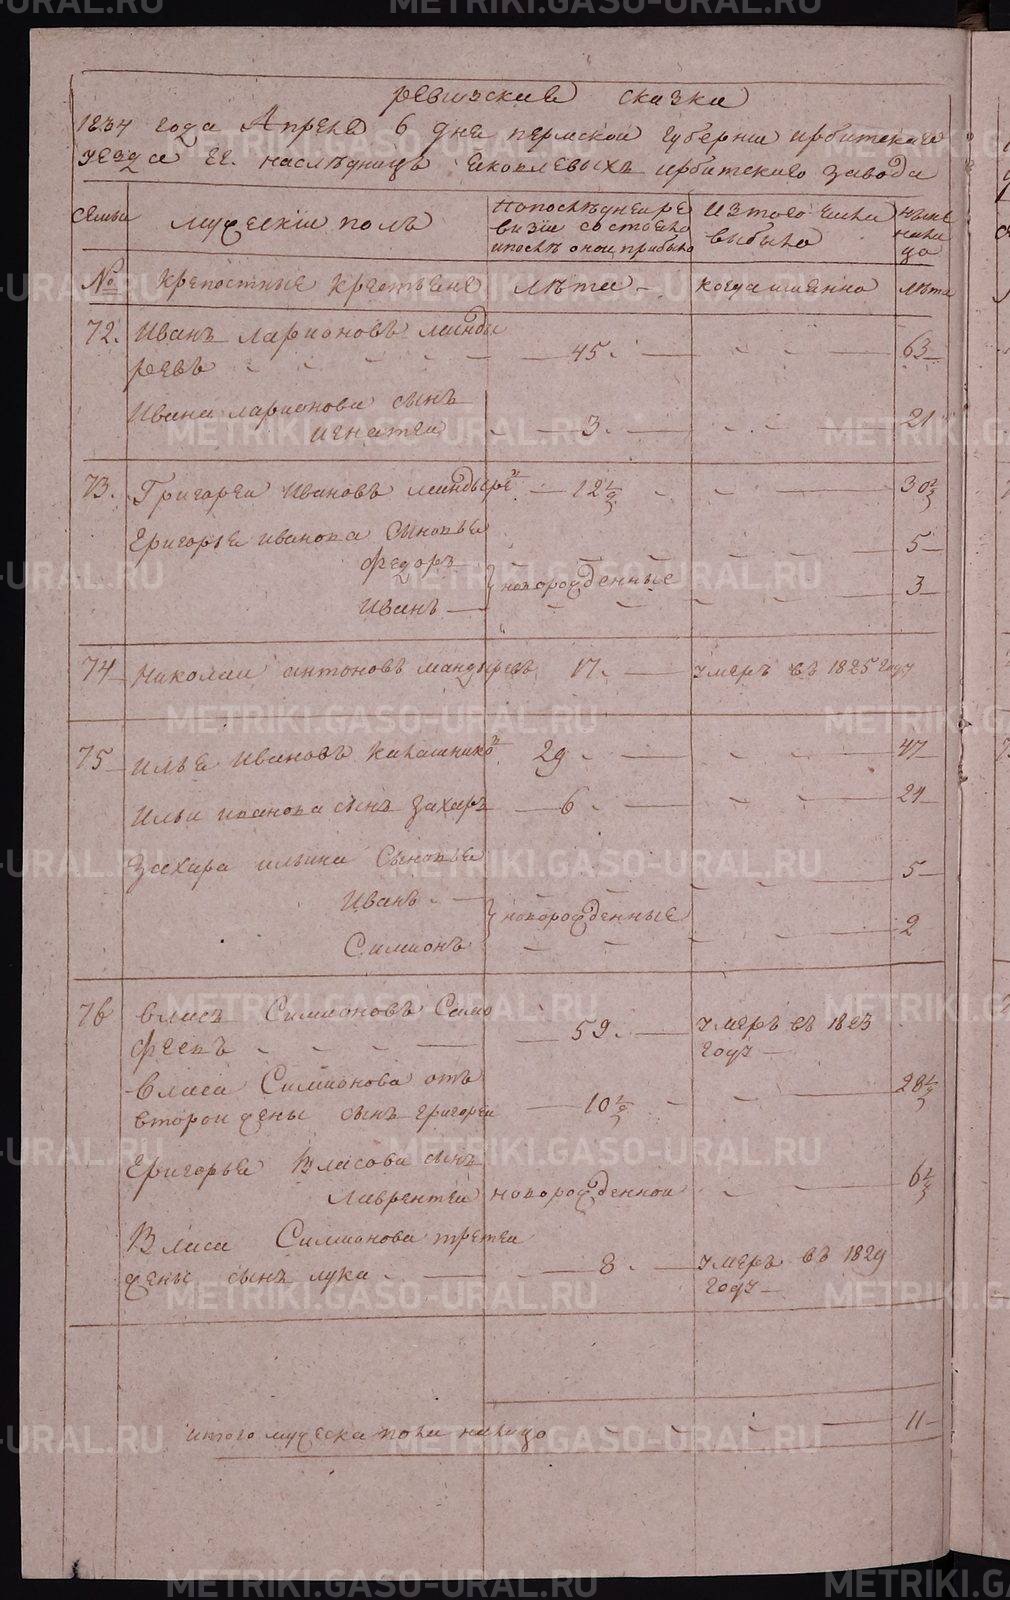 ревизские сказки
1834 года Апреля 6 дня пермской губернии ирбитского
уезда гг. наслѣдницъ яковлевыхъ ирбитского завода
семьи
мужескiй полъ
По послѣдней ре
визiи состояло
и послѣ оной прибыло
Изъ того числа
выбыло
нынѣ
нали
цо
№
крепостные крестьяне
лѣта
когда именно
лѣта
72. Иванъ ларионовъ манды
ревъ 45. 63
Ивана ларионова сынъ
игнатей 3. 21
73. Григорей Ивановъ мандыре 12 1/2 30 1/2
Григорья иванова сыновья
федоръ 5
новорожденные
Иванъ 3
74 Николай антоновъ мандыревъ 17. умеръ въ 1825 году
75 Илья Ивановъ калашнико 29 47
Ильи иванова сынъ захаръ 6 24
Захара ильина сыновья
Иванъ 5
новорожденные
Симионъ 2
76 власъ Симионовъ Само
феевъ 59. умеръ въ 1823
году
Власа Симионова отъ
второй жены сынъ григорей 10 1/2 28 1/2
Григорья Власова сынъ
Лаврентей новорожденной 6 1/2
Власа Симионова третьей
жены сынъ лука 8. умеръ въ 1829
году
итого мужеска пола налицо 11
METRIKI.GASO-URAL.RU